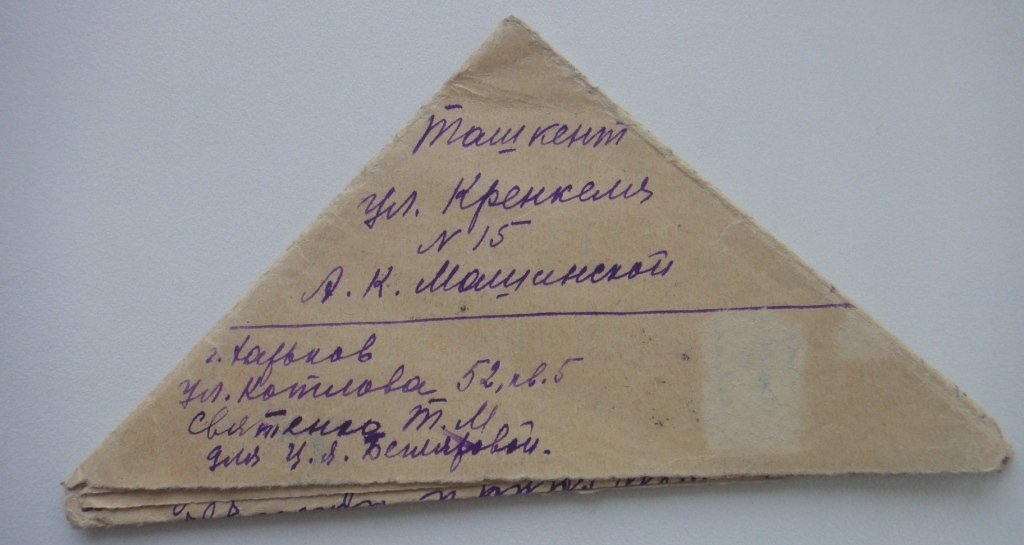 Ташкент
ул. Кренкеля
N 15
А. К. Машинской
г. Харьков
ул. Котлова 52, кв. 5
Святенко Т. М
для Ц. Я.